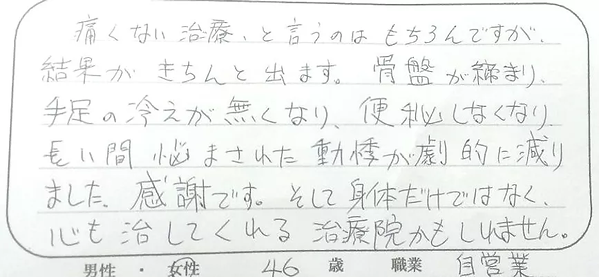 痛くない治療、と言うのはもちろんですが、
結果がきちんと出ます。骨盤が締まり、
手足の冷えが無くなり、便秘しなくなり、
長い間悩まされた動悸が劇的に減り
ました。感謝です。そして身体だけではなく、
心も治してくれる治療院かもしれません。
男性・女性 46 歳 職業 自営業